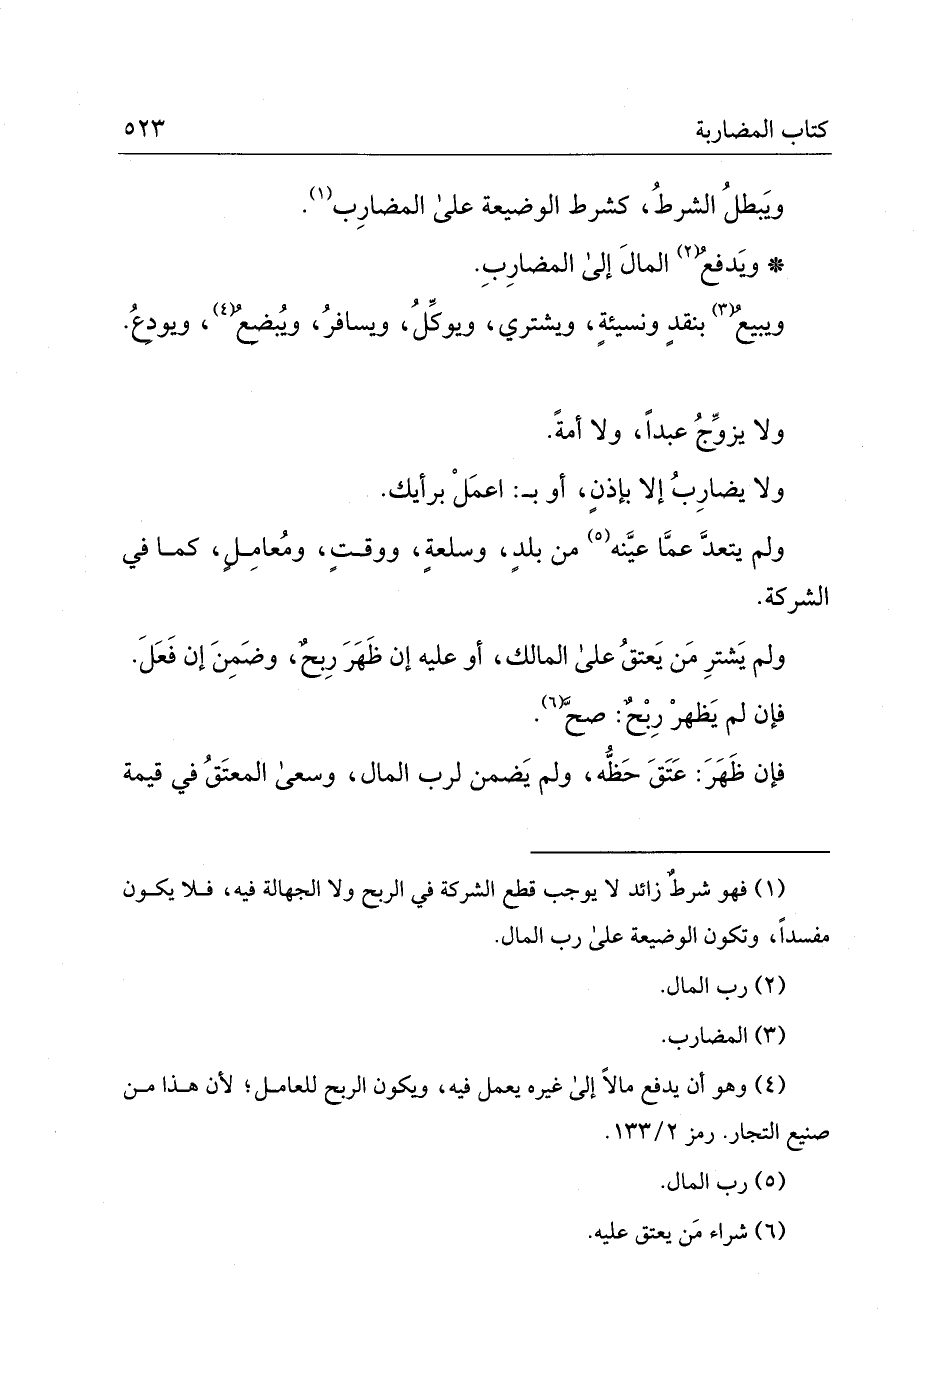 كتاب المضاربة ٥٢٣
ويَبطلُ الشرطُ، كشرط الوضيعة علىٰ المضارِب(١).
* ويَدفعُ(٢) المالَ إلىٰ المضارِبِ.
ويبيعُ(٣) بنقدٍ ونسيئةٍ، ويشتري، ويوكِّلُ، ويسافرُ، ويُبضِعُ(٤)، ويودِعُ.
ولا يزوِّجُ عبداً، ولا أمةً.
ولا يضارِبُ إلا بإذنٍ، أو بـ: اعمَلْ برأيك.
ولم يتعدَّ عمَّا عيَّنه(٥) من بلدٍ، وسلعةٍ، ووقـتٍ، ومُعامِـلٍ، كمـا في
الشركة.
ولم يَشترِ مَن يَعتقُ علىٰ المالك، أو عليه إن ظَهَرَ رِبحٌ، وضَمِنَ إن فَعَلَ.
فإن لم يَظهرْ رِبْحٌ: صحَّ(٦).
فإن ظَهَرَ: عَتَقَ حَظُّه، ولم يَضمن لرب المال، وسعىٰ المعتَقُ في قيمة
(١) فهو شرطٌ زائد لا يوجب قطع الشركة في الربح ولا الجهالة فيه، فـلا يكـون
مفسداً، وتكون الوضيعة علىٰ رب المال.
(٢) رب المال.
(٣) المضارب.
(٤) وهو أن يدفع مالاً إلىٰ غيره يعمل فيه، ويكون الربح للعامـل؛ لأن هـذا مـن
صنيع التجار. رمز ١٣٣/٢.
(٥) رب المال.
(٦) شراء مَن يعتق عليه.